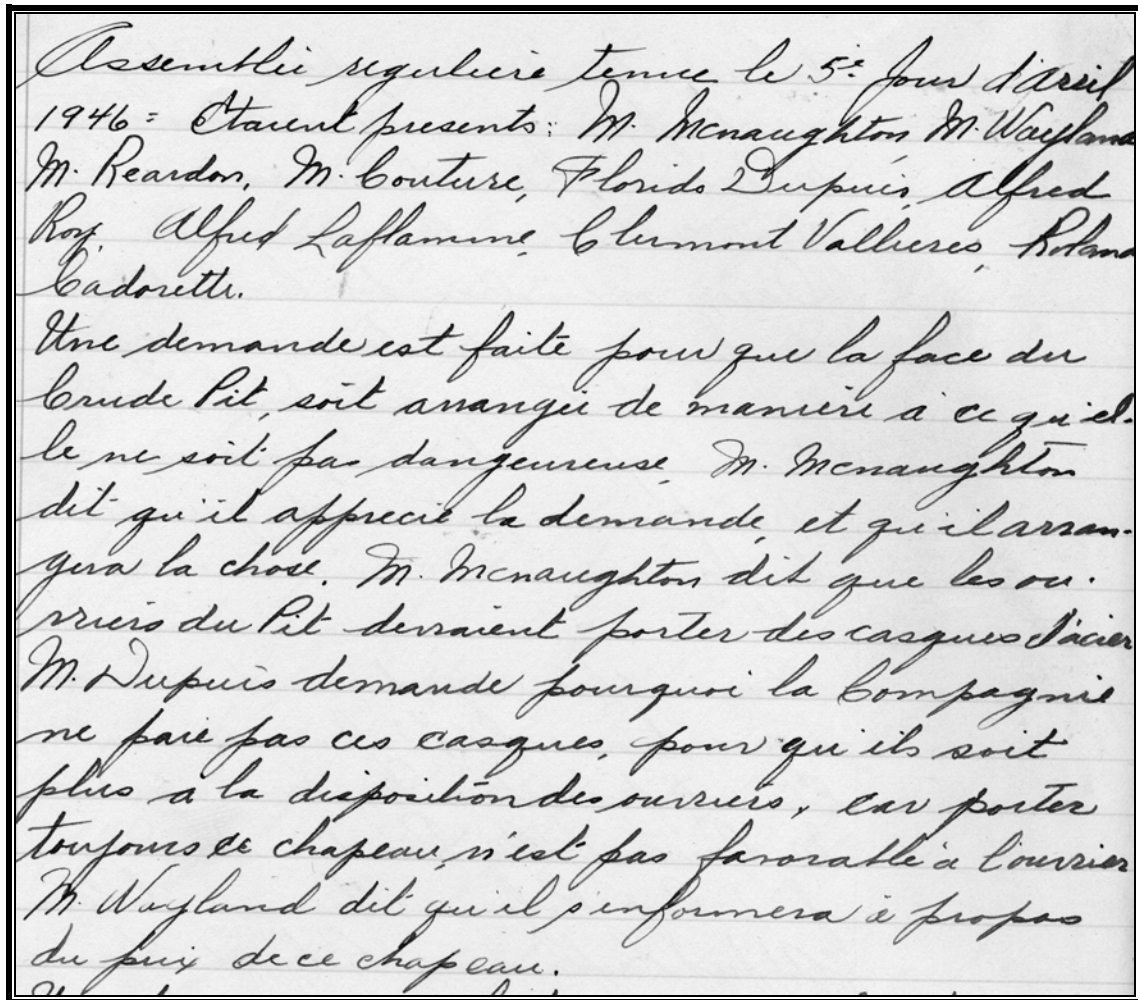 Assemblée reguliere tenue le 5e Jour d'Avril
1946 = Etaient presents: M. Mcnaughton M. Wayland
M. Reardon, M. Couture, Florido Dupuis, Alfred
Roy, Alfred Laflamme, Clermont Vallieres, Roland
Cadorette.
Une demande est faite pour que la face du
Crude Pit, soit arrangée de maniere a ce qu'el-
le ne soit pas dangeureuse. M. Mcnaughton
dit qu'il apprecie la demande, et qu'il arran-
gera la chose. M. Mcnaughton dit que les ou-
vriers du Pit devraient porter des casques d'acier
M. Dupuis demande pourquoi la Compagnie
ne paie pas ces casques, pour qu'ils soit
plus a la disposition des ouvriers, car porter
toujours ce chapeau, n'est pas favorable a l'ouvrier
M. Wayland dit qu'il s'informera à propos
du prix de ce chapeau.